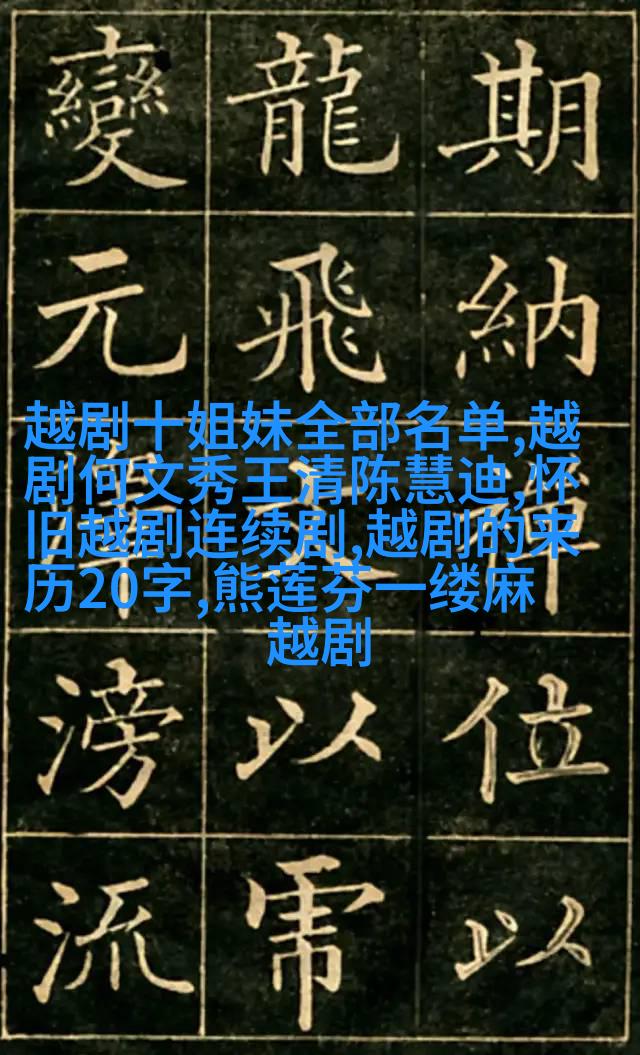 期納禪位以
龍飛以
變元滂流
越剧十姐妹全部名单,越
剧何文秀王清陈慧迪,怀
旧越剧连续剧,越剧的来
历20字,熊莲芬一缕麻
越剧